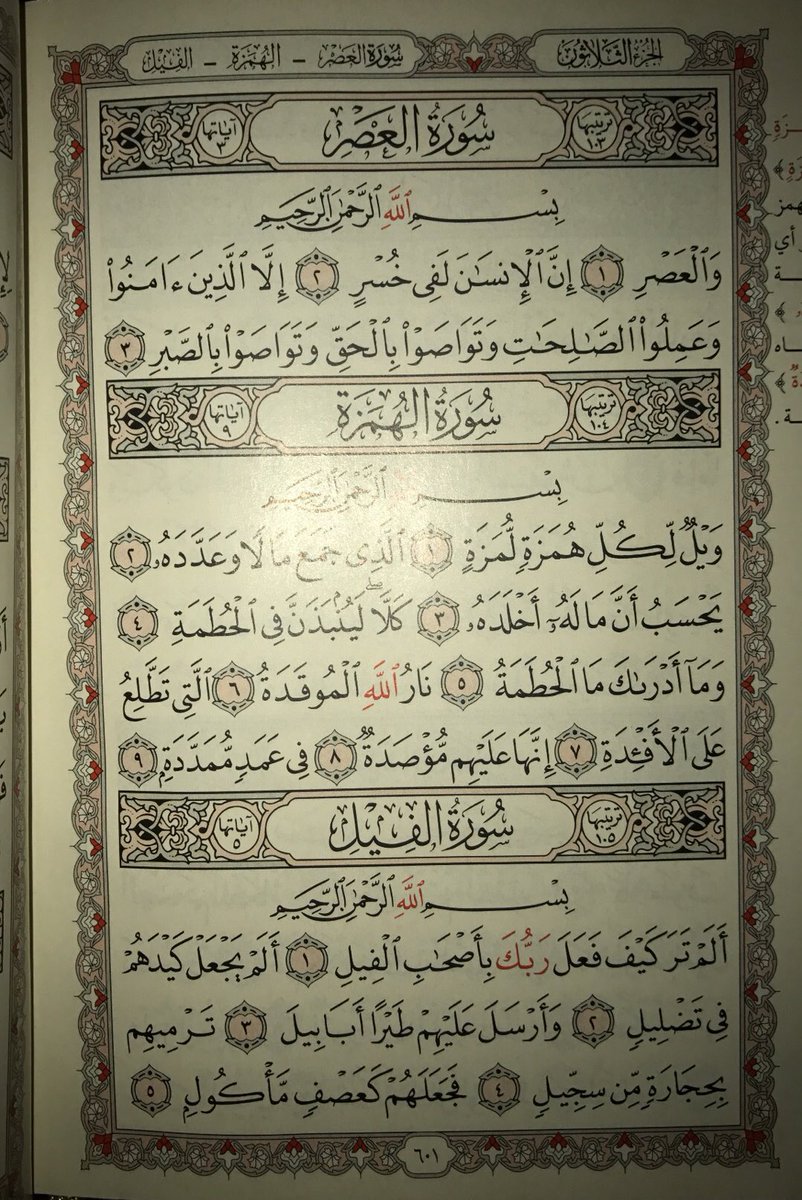 الجزء الثلاثون
سورة العصر - الهمزة - الفيل
ترتيبها ١٠٣ سُورَةُ العَصْرِ آياتها ٣
بِسْمِ اللَّهِ الرَّحْمَٰنِ الرَّحِيمِ
وَٱلْعَصْرِ ١ إِنَّ ٱلْإِنسَٰنَ لَفِى خُسْرٍ ٢ إِلَّا ٱلَّذِينَ ءَامَنُوا۟
وَعَمِلُوا۟ ٱلصَّٰلِحَٰتِ وَتَوَاصَوْا۟ بِٱلْحَقِّ وَتَوَاصَوْا۟ بِٱلصَّبْرِ ٣
ترتيبها ١٠٤ سُورَةُ الهُمَزَةِ آياتها ٩
بِسْمِ الرَّحْمَٰنِ الرَّحِيمِ
وَيْلٌ لِّكُلِّ هُمَزَةٍ لُّمَزَةٍ ١ ٱلَّذِى جَمَعَ مَالًا وَعَدَّدَهُۥ ٢
يَحْسَبُ أَنَّ مَالَهُۥٓ أَخْلَدَهُۥ ٣ كَلَّا ۖ لَيُنۢبَذَنَّ فِى ٱلْحُطَمَةِ ٤
وَمَآ أَدْرَىٰكَ مَا ٱلْحُطَمَةُ ٥ نَارُ ٱللَّهِ ٱلْمُوقَدَةُ ٦ ٱلَّتِى تَطَّلِعُ
عَلَى ٱلْأَفْـِٔدَةِ ٧ إِنَّهَا عَلَيْهِم مُّؤْصَدَةٌ ٨ فِى عَمَدٍ مُّمَدَّدَةٍۭ ٩
ترتيبها ١٠٥ سُورَةُ الفِيلِ آياتها ٥
بِسْمِ اللَّهِ الرَّحْمَٰنِ الرَّحِيمِ
أَلَمْ تَرَ كَيْفَ فَعَلَ رَبُّكَ بِأَصْحَٰبِ ٱلْفِيلِ ١ أَلَمْ يَجْعَلْ كَيْدَهُمْ
فِى تَضْلِيلٍ ٢ وَأَرْسَلَ عَلَيْهِمْ طَيْرًا أَبَابِيلَ ٣ تَرْمِيهِم
بِحِجَارَةٍ مِّن سِجِّيلٍ ٤ فَجَعَلَهُمْ كَعَصْفٍ مَّأْكُولٍۭ ٥
٦٠١